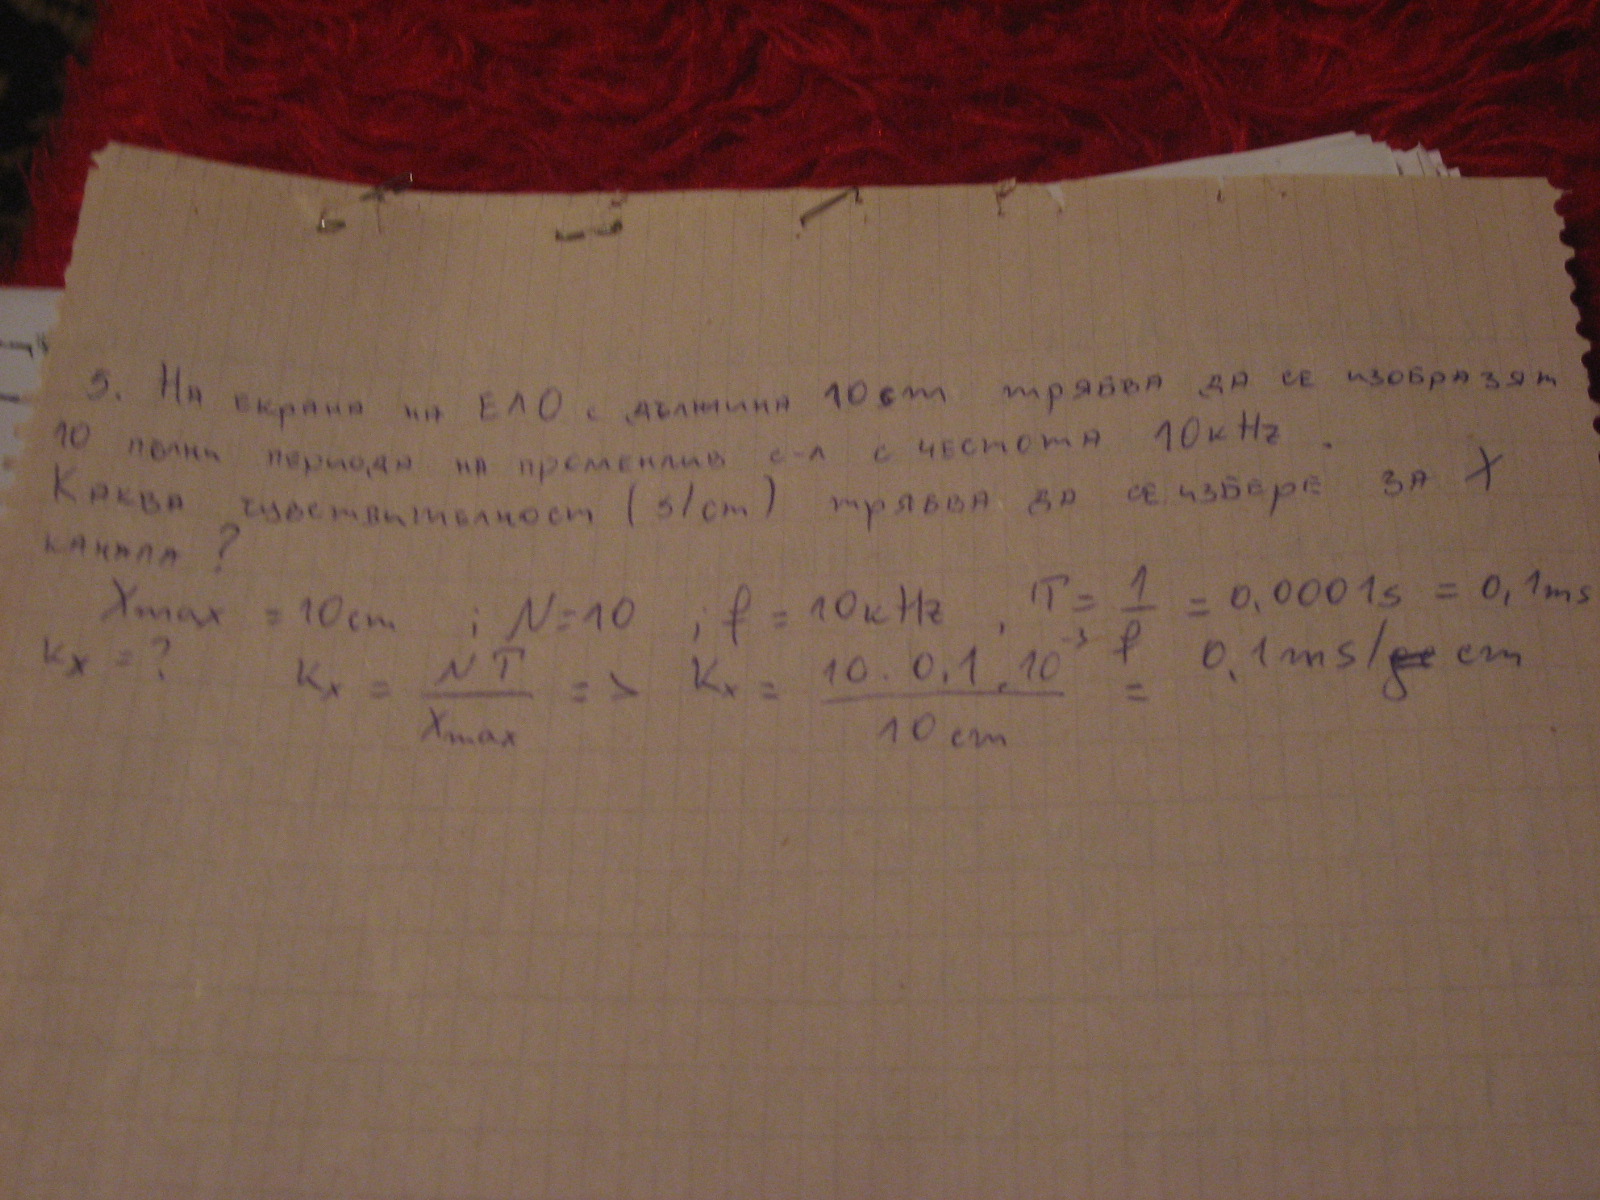 5. На екрана на ЕЛО с дължина 10cm трябва да се изобразят
10 пълни периода на променлив с-л с честота 10кHz.
Каква чувствителност (s/cm) трябва да се избере за X
канала?
Xmax = 10cm ; N=10 ; f = 10кHz , T = 1/f = 0,0001s = 0,1ms
Kx = ? Kx = NT/Xmax => Kx = 10. 0,1 . 10^-3/10 cm = 0,1ms/cm